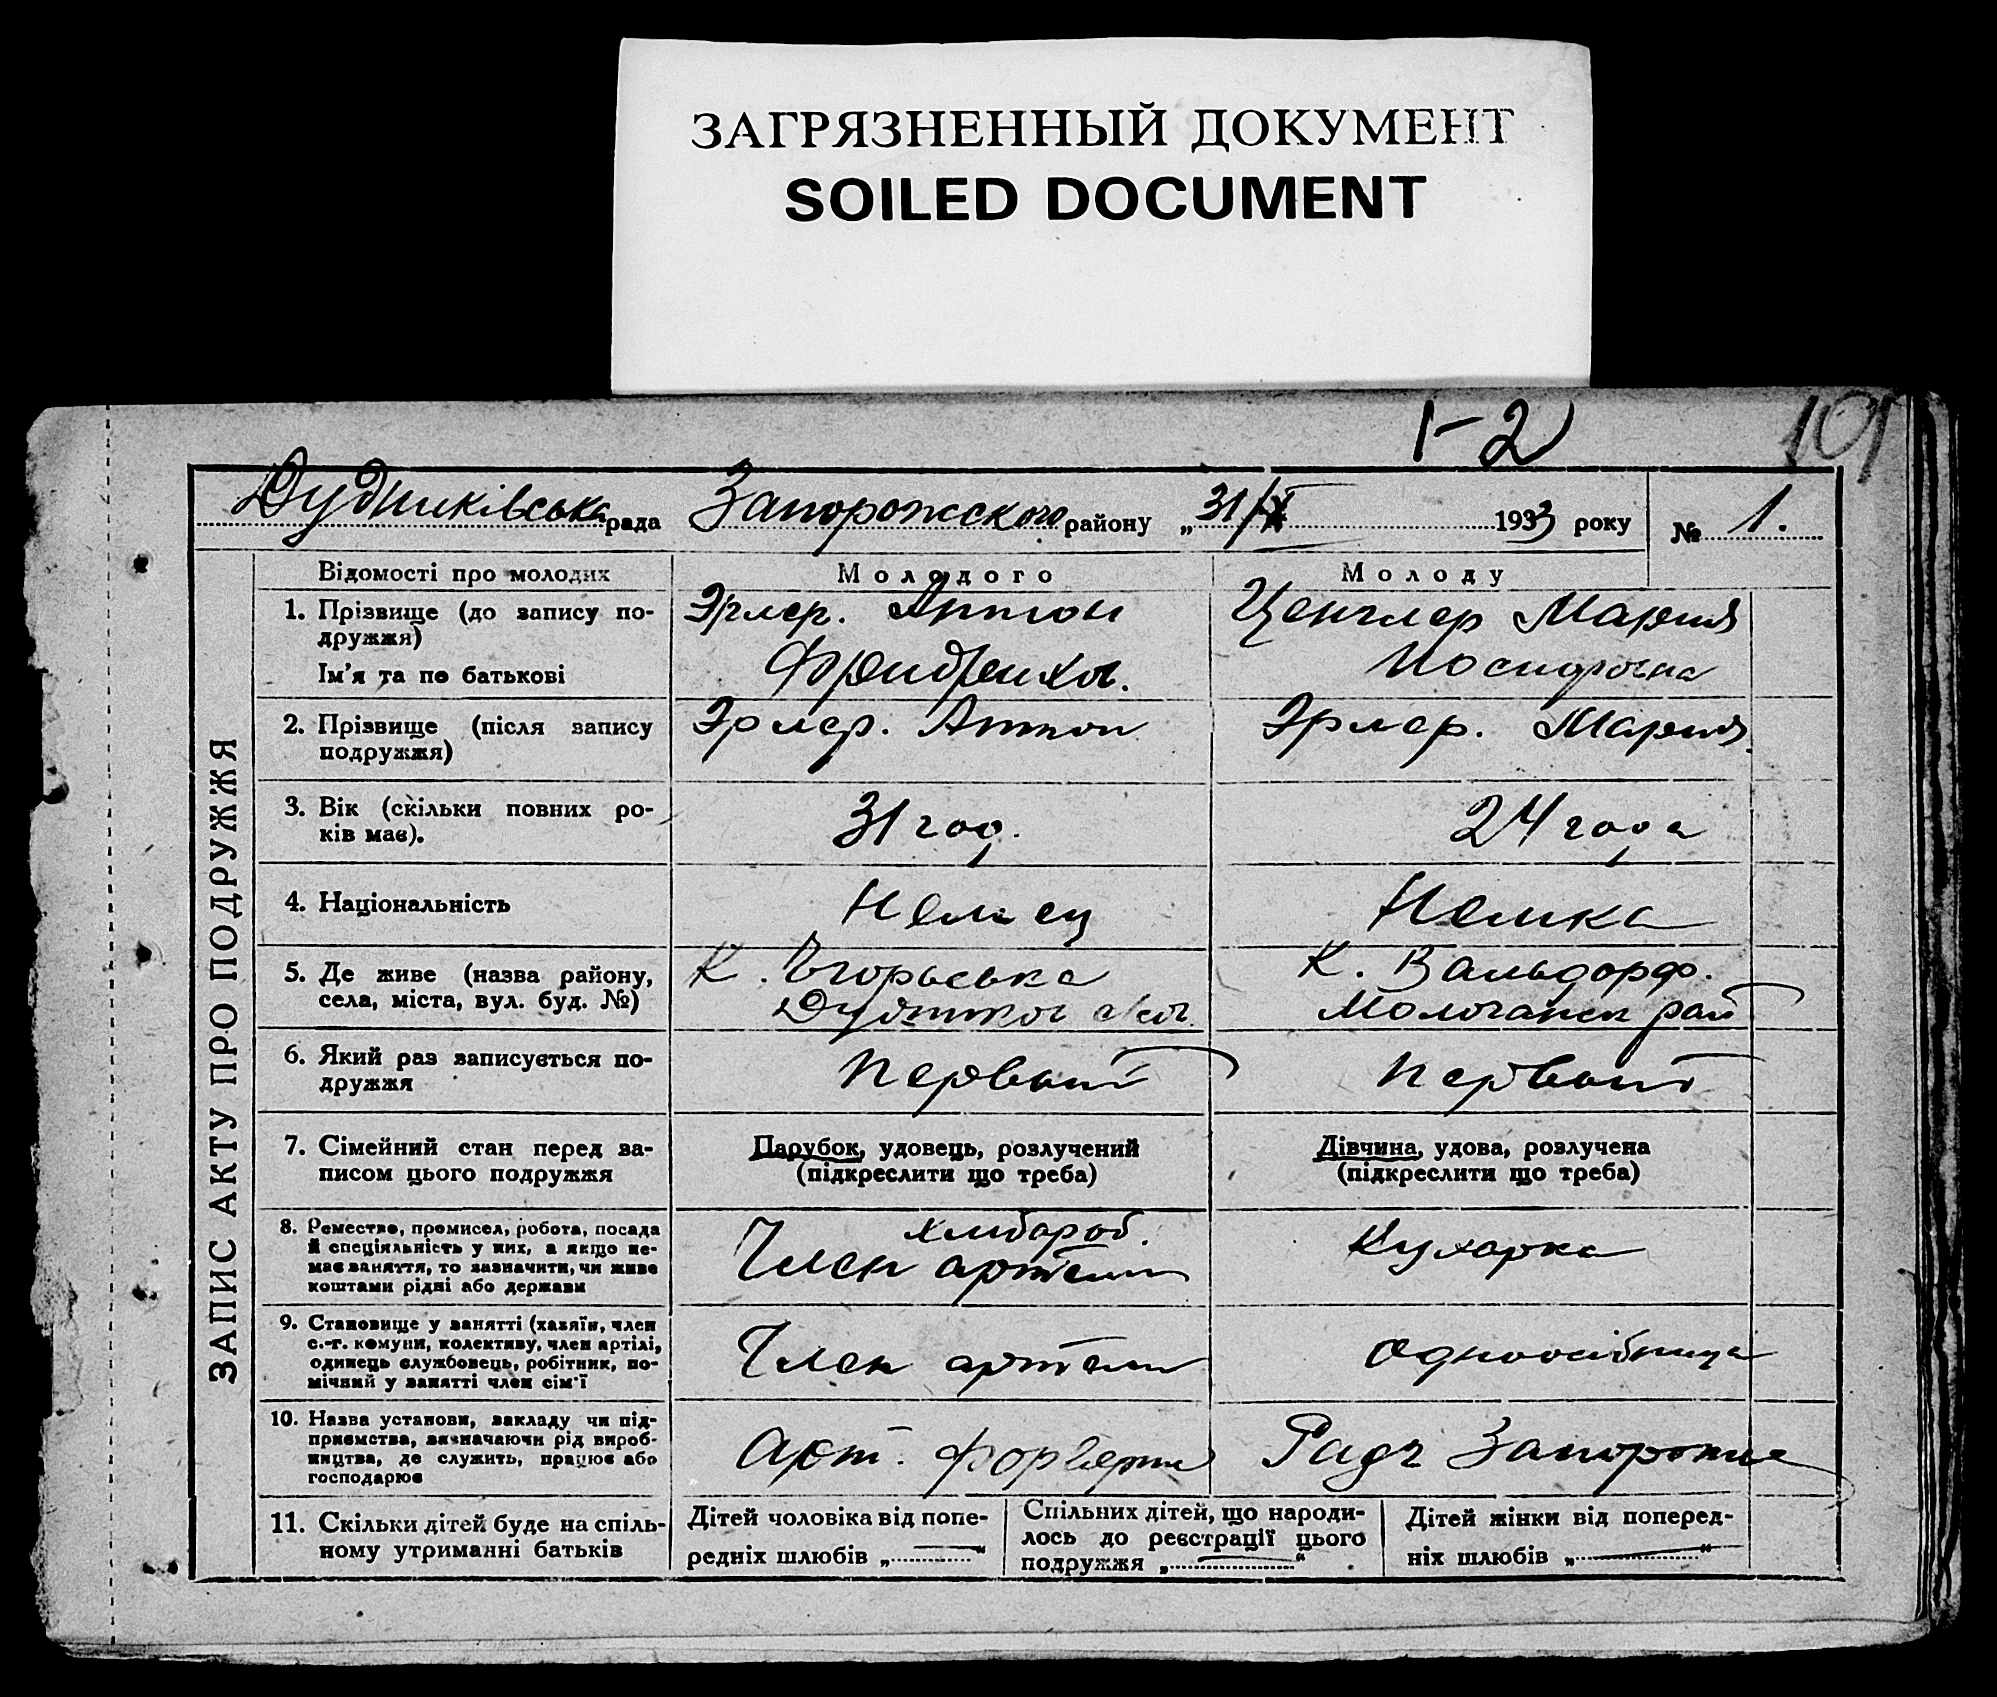 ЗАГРЯЗНЕННЫЙ ДОКУМЕНТ
SOILED DOCUMENT
1-2
101
Дудниківська рада Запорожского району „31/ 1933 року № 1.
ЗАПИС АКТУ ПРО ПОДРУЖЖЯ
Відомості про молодих
Молодого
Молоду
1. Прізвище (до запису по-
дружжя)
Ім'я та по батькові
Эрлер. Антон
Фридрихов.
Ценглер Мария
Иосифовна
2. Прізвище (після запису
подружжя)
Эрлер. Антон
Эрлер. Мария
3. Вік (скільки повних ро-
ків має).
31 год.
24 года
4. Національність
Немец
Немка
5. Де живе (назва району,
села, міста, вул. буд. №)
К.
К. Вальдорф.
Молочанск рай
6. Який раз записується по-
дружжя
Первый
Первый
7. Сімейний стан перед за-
писом цього подружжя
Парубок, удовець, розлучений
(підкреслити що треба)
Дівчина, удова, розлучена
(підкреслити що треба)
8. Ремество, промисел, робота, посада
й спеціяльність у них, а якщо не-
має заняття, то зазначити, чи живе
коштами рідні або держави
хлибороб.
Член артели
Кухарка
9. Становище у занятті (хазяїн, член
с.-г. комуни, колективу, член артілі,
одинець службовець, робітник, по-
мічний у занятті член сім'ї
Член артели
Одноосібница
10. Назва установи, закладу чи під-
приємства, зазначаючи рід вироб-
ництва, де служить, працює або
господарює
Арт. Форверти
Запорожие
11. Скільки дітей буде на спіль-
ному утриманні батьків
Дітей чоловіка від попе-
редніх шлюбів „ — “
Спільних дітей, що народи-
лось до реєстрації цього
подружжя „ — “
Дітей жінки від поперед-
ніх шлюбів „ — “